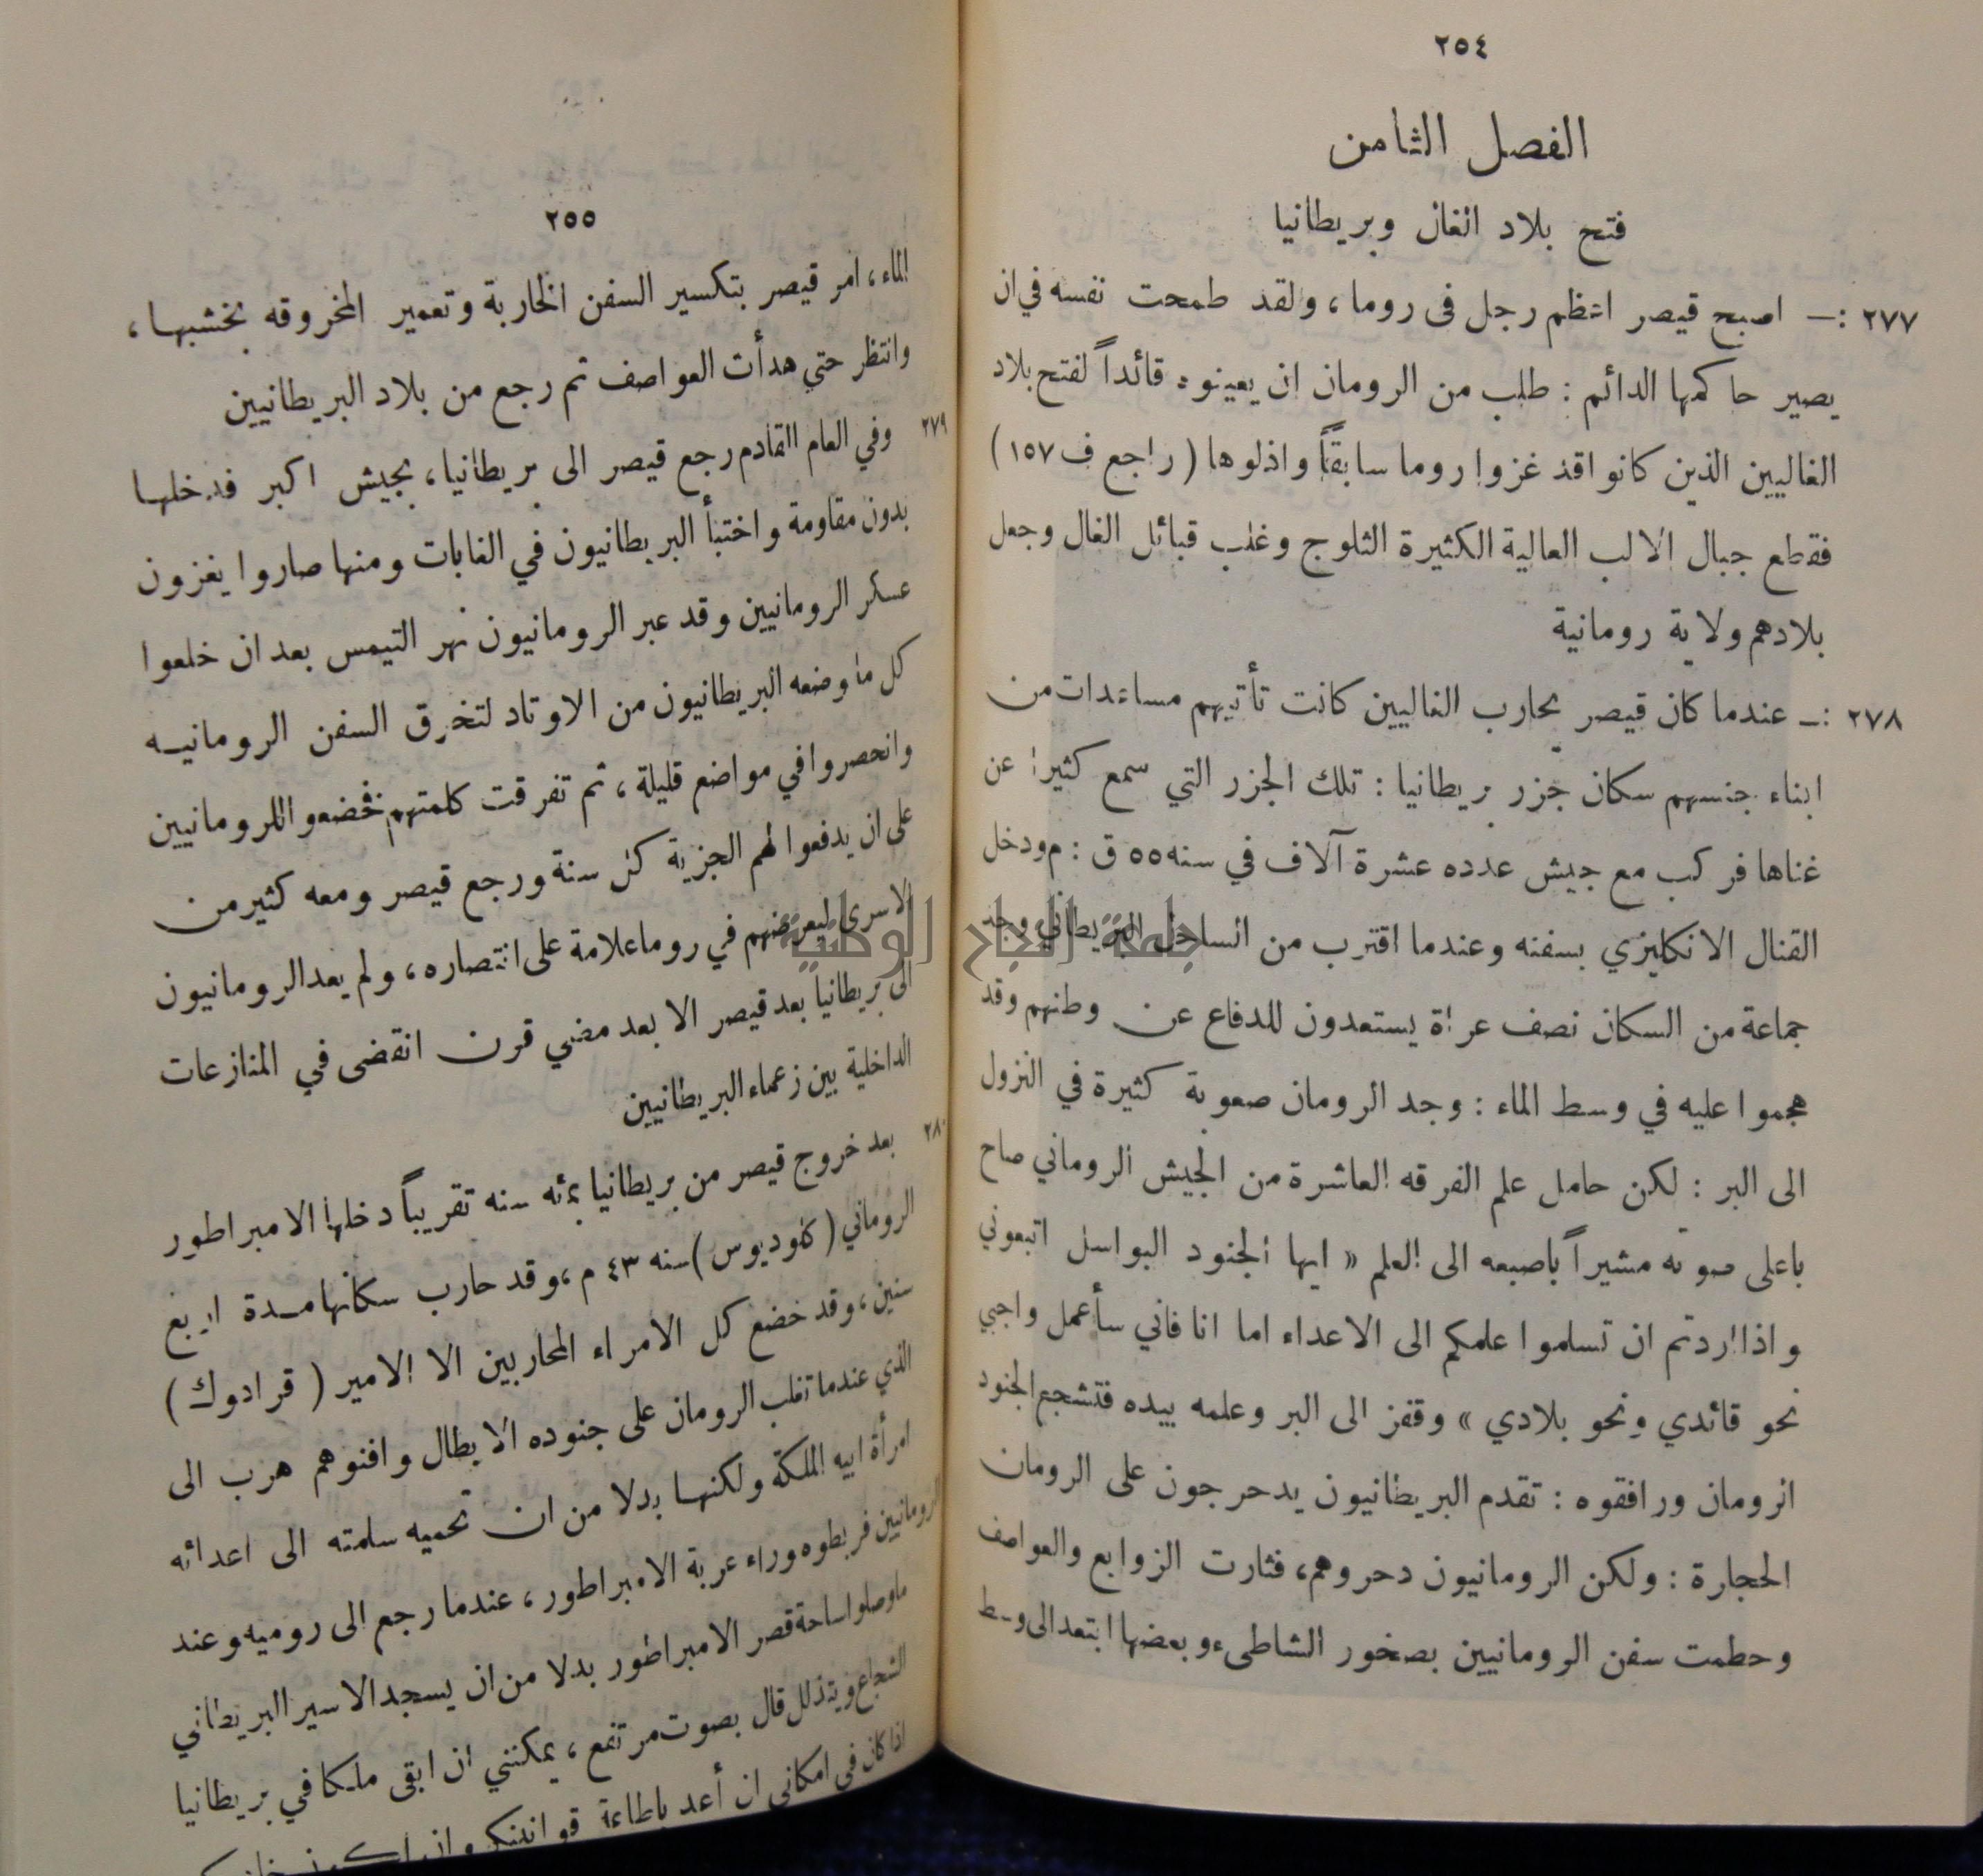 ٢٥٤
الفصل الثامن
فتح بلاد الغال وبريطانيا
٢٧٧ :— اصبح قيصر اعظم رجل فى روما، ولقد طمحت نفسه في ان
يصير حاكمها الدائم : طلب من الرومان ان يعينوه قائداً لفتح بلاد
الغاليين الذين كانوا قد غزوا روما سابقاً واذلوها (راجع ف ١٥٧)
فقطع جبال الالب العالية الكثيرة الثلوج وغلب قبائل الغال وجعل
بلادهم ولاية رومانية
٢٧٨ :— عندما كان قيصر يحارب الغاليين كانت تأتيهم مساعدات من
ابناء جنسهم سكان جزر بريطانيا : تلك الجزر التي سمع كثيرا عن
غناها فركب مع جيش عدده عشرة آلاف في سنه ٥٥ ق : م ودخل
القنال الانكليزي بسفنه وعندما اقترب من الساحل البريطاني وجد
جماعة من السكان نصف عراة يستعدون للدفاع عن وطنهم وقد
هجموا عليه في وسط الماء : وجد الرومان صعوبة كثيرة في النزول
الى البر : لكن حامل علم الفرقه العاشرة من الجيش الروماني صاح
باعلى صوته مشيراً باصبعه الى العلم « ايها الجنود البواسل اتبعوني
واذا اردتم ان تسلموا علمكم الى الاعداء اما انا فاني سأعمل واجبي
نحو قائدي ونحو بلادي » وقفز الى البر وعلمه بيده فتشجع الجنود
الرومان ورافقوه : تقدم البريطانيون يدحرجون على الرومان
الحجارة : ولكن الرومانيون دحروهم، فثارت الزوابع والعواصف
وحطمت سفن الرومانيين بصخور الشاطىء وبعضها ابتعد الى وسط
جامعة النجاح الوطنية
٢٥٥
الماء، امر قيصر بتكسير السفن الخاربة وتعمير المخروقه بخشبها،
وانتظر حتي هدأت العواصف ثم رجع من بلاد البريطانيين
٢٧٩ وفي العام القادم رجع قيصر الى بريطانيا، بجيش اكبر فدخلها
بدون مقاومة واختبأ البريطانيون في الغابات ومنها صاروا يغزون
عسكر الرومانيين وقد عبر الرومانيون نهر التيمس بعد ان خلعوا
كل ما وضعه البريطانيون من الاوتاد لتخرق السفن الرومانيه
وانحصروا في مواضع قليلة، ثم تفرقت كلمتهم فخضعوا للرومانيين
على ان يدفعوا لهم الجزية كل سنة ورجع قيصر ومعه كثير من
الاسرى ليعرضهم في روما علامة على انتصاره، ولم يعد الرومانيون
الى بريطانيا بعد قيصر الا بعد مضي قرن انقضى في المنازعات
الداخلية بين زعماء البريطانيين
٢٨٠ بعد خروج قيصر من بريطانيا بمئه سنه تقريباً دخلها الامبراطور
الروماني (كلوديوس) سنه ٤٣ م، وقد حارب سكانها مدة اربع
سنين، وقد خضع كل الامراء المحاربين الا الامير (قرادوك)
الذي عندما تغلب الرومان على جنوده الابطال وافنوهم هرب الى
امرأة ابيه الملكة ولكنها بدلا من ان تحميه سلمته الى اعدائه
الرومانيين فربطوه وراء عربة الامبراطور، عندما رجع الى روميه وعند
ما وصلوا ساحة قصر الامبراطور بدلا من ان يسجد الاسير البريطاني
الشجاع ويتذلل قال بصوت مرتفع، يمكنني ان ابقى ملكا في بريطانيا
اذا كان في امكاني ان أعد باطاعة قوانينكم وان